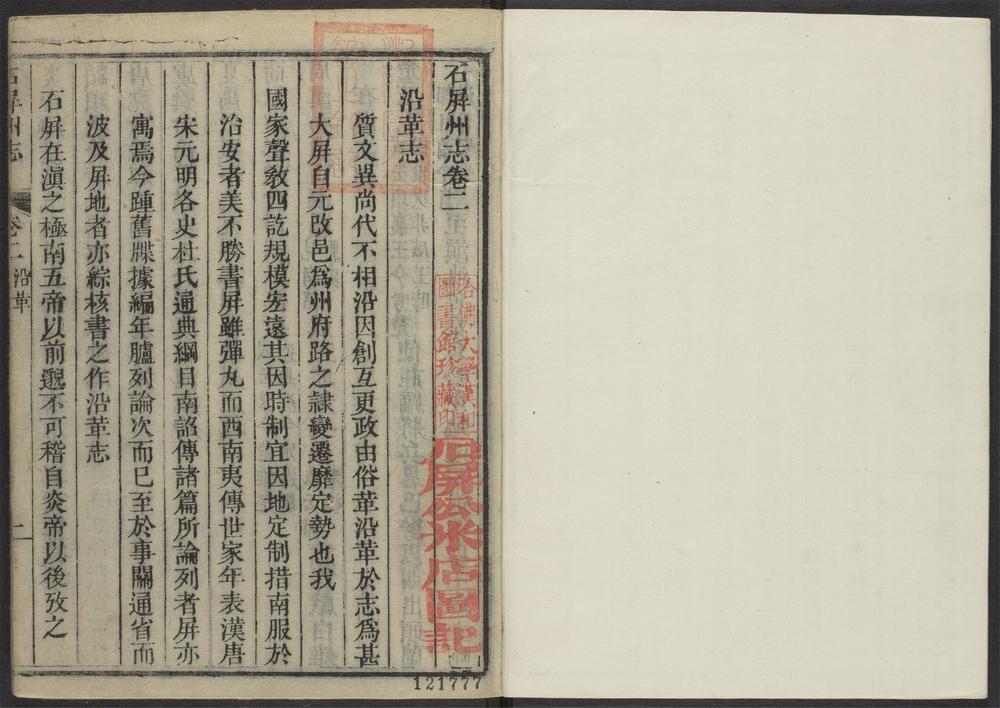 石屏州志卷二
沿革志
質文異尚代不相沿因創互更政由俗革沿革於志爲甚
大屏自元改邑爲州府路之隷變遷靡定勢也我
國家聲敎四訖規模宏遠其因時制宜因地定制措南服於
治安者美不勝書屏雖彈丸而西南夷傳世家年表漢唐
宋元明各史杜氏通典綱目南詔傳諸篇所論列者屏亦
寓焉今踵舊牒據編年臚列論次而已至於事關通省而
波及屏地者亦綜核書之作沿革志
石屏在滇之極南五帝以前邈不可稽自炎帝以後攷之
石屏州志
卷二 沿革
一
哈佛大學漢和
圖書館珍藏印
石屏公米店圖記
121777